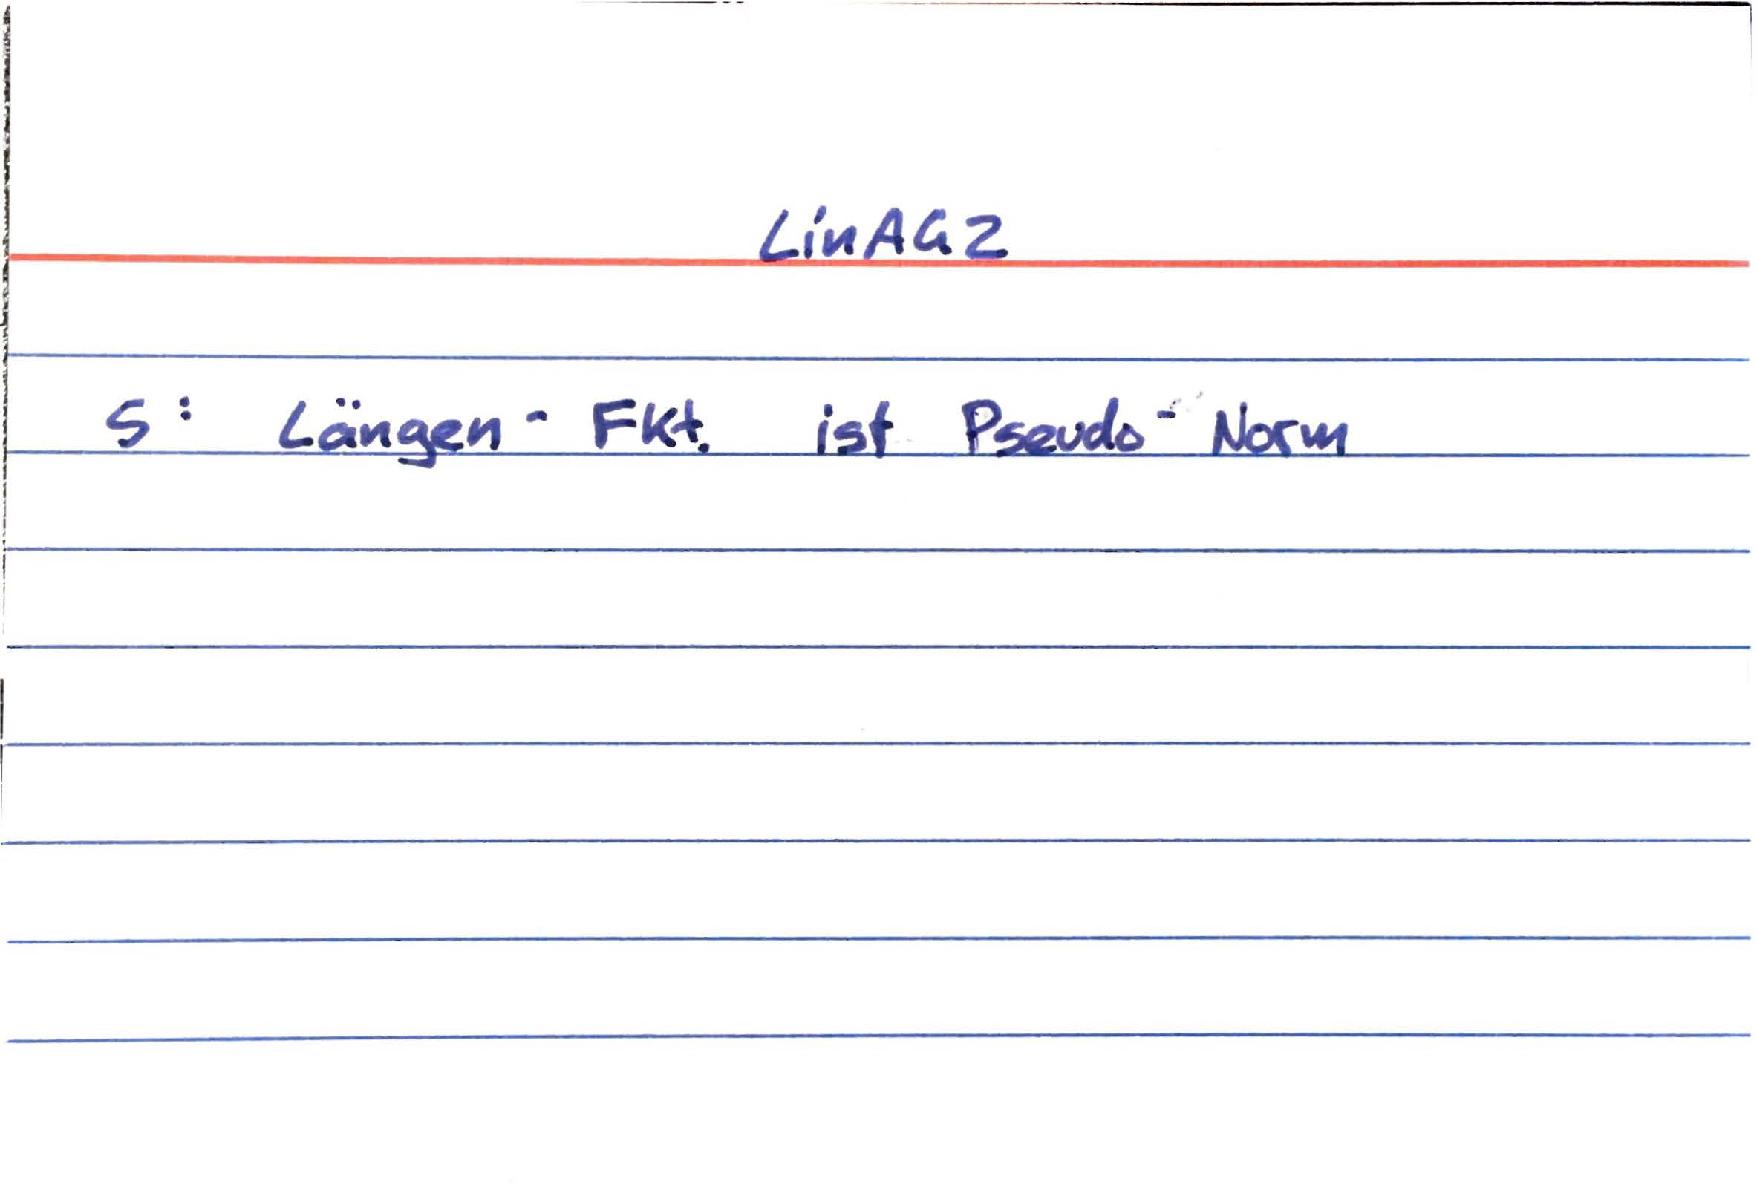 LinAG2
S: Längen-Fkt. ist Pseudo-Norm